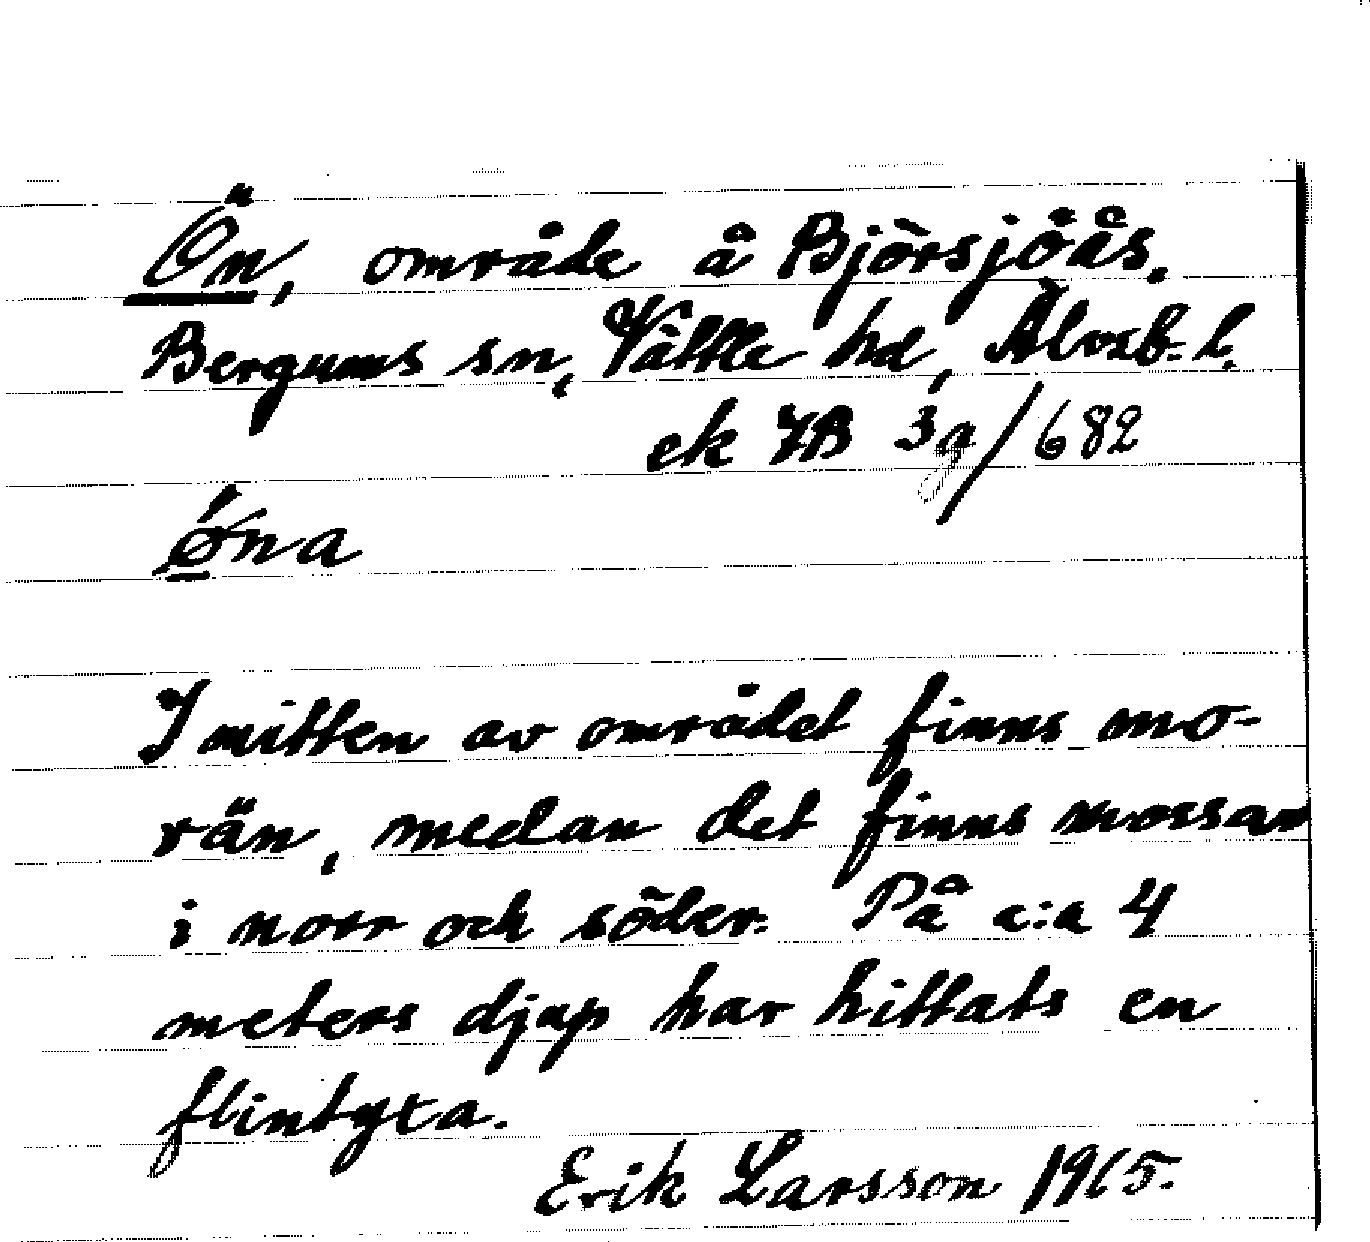 Ön, område å Björsjöås.
Bergums sn, Vättle hd, Älvsb. l.
ek 7B 3g/682
ǿna
I mitten av området finns mo-
rän, medan det finns mossar
i norr och söder. På c:a 4
meters djup har hittats en
flintyxa.
Erik Larsson 1965.